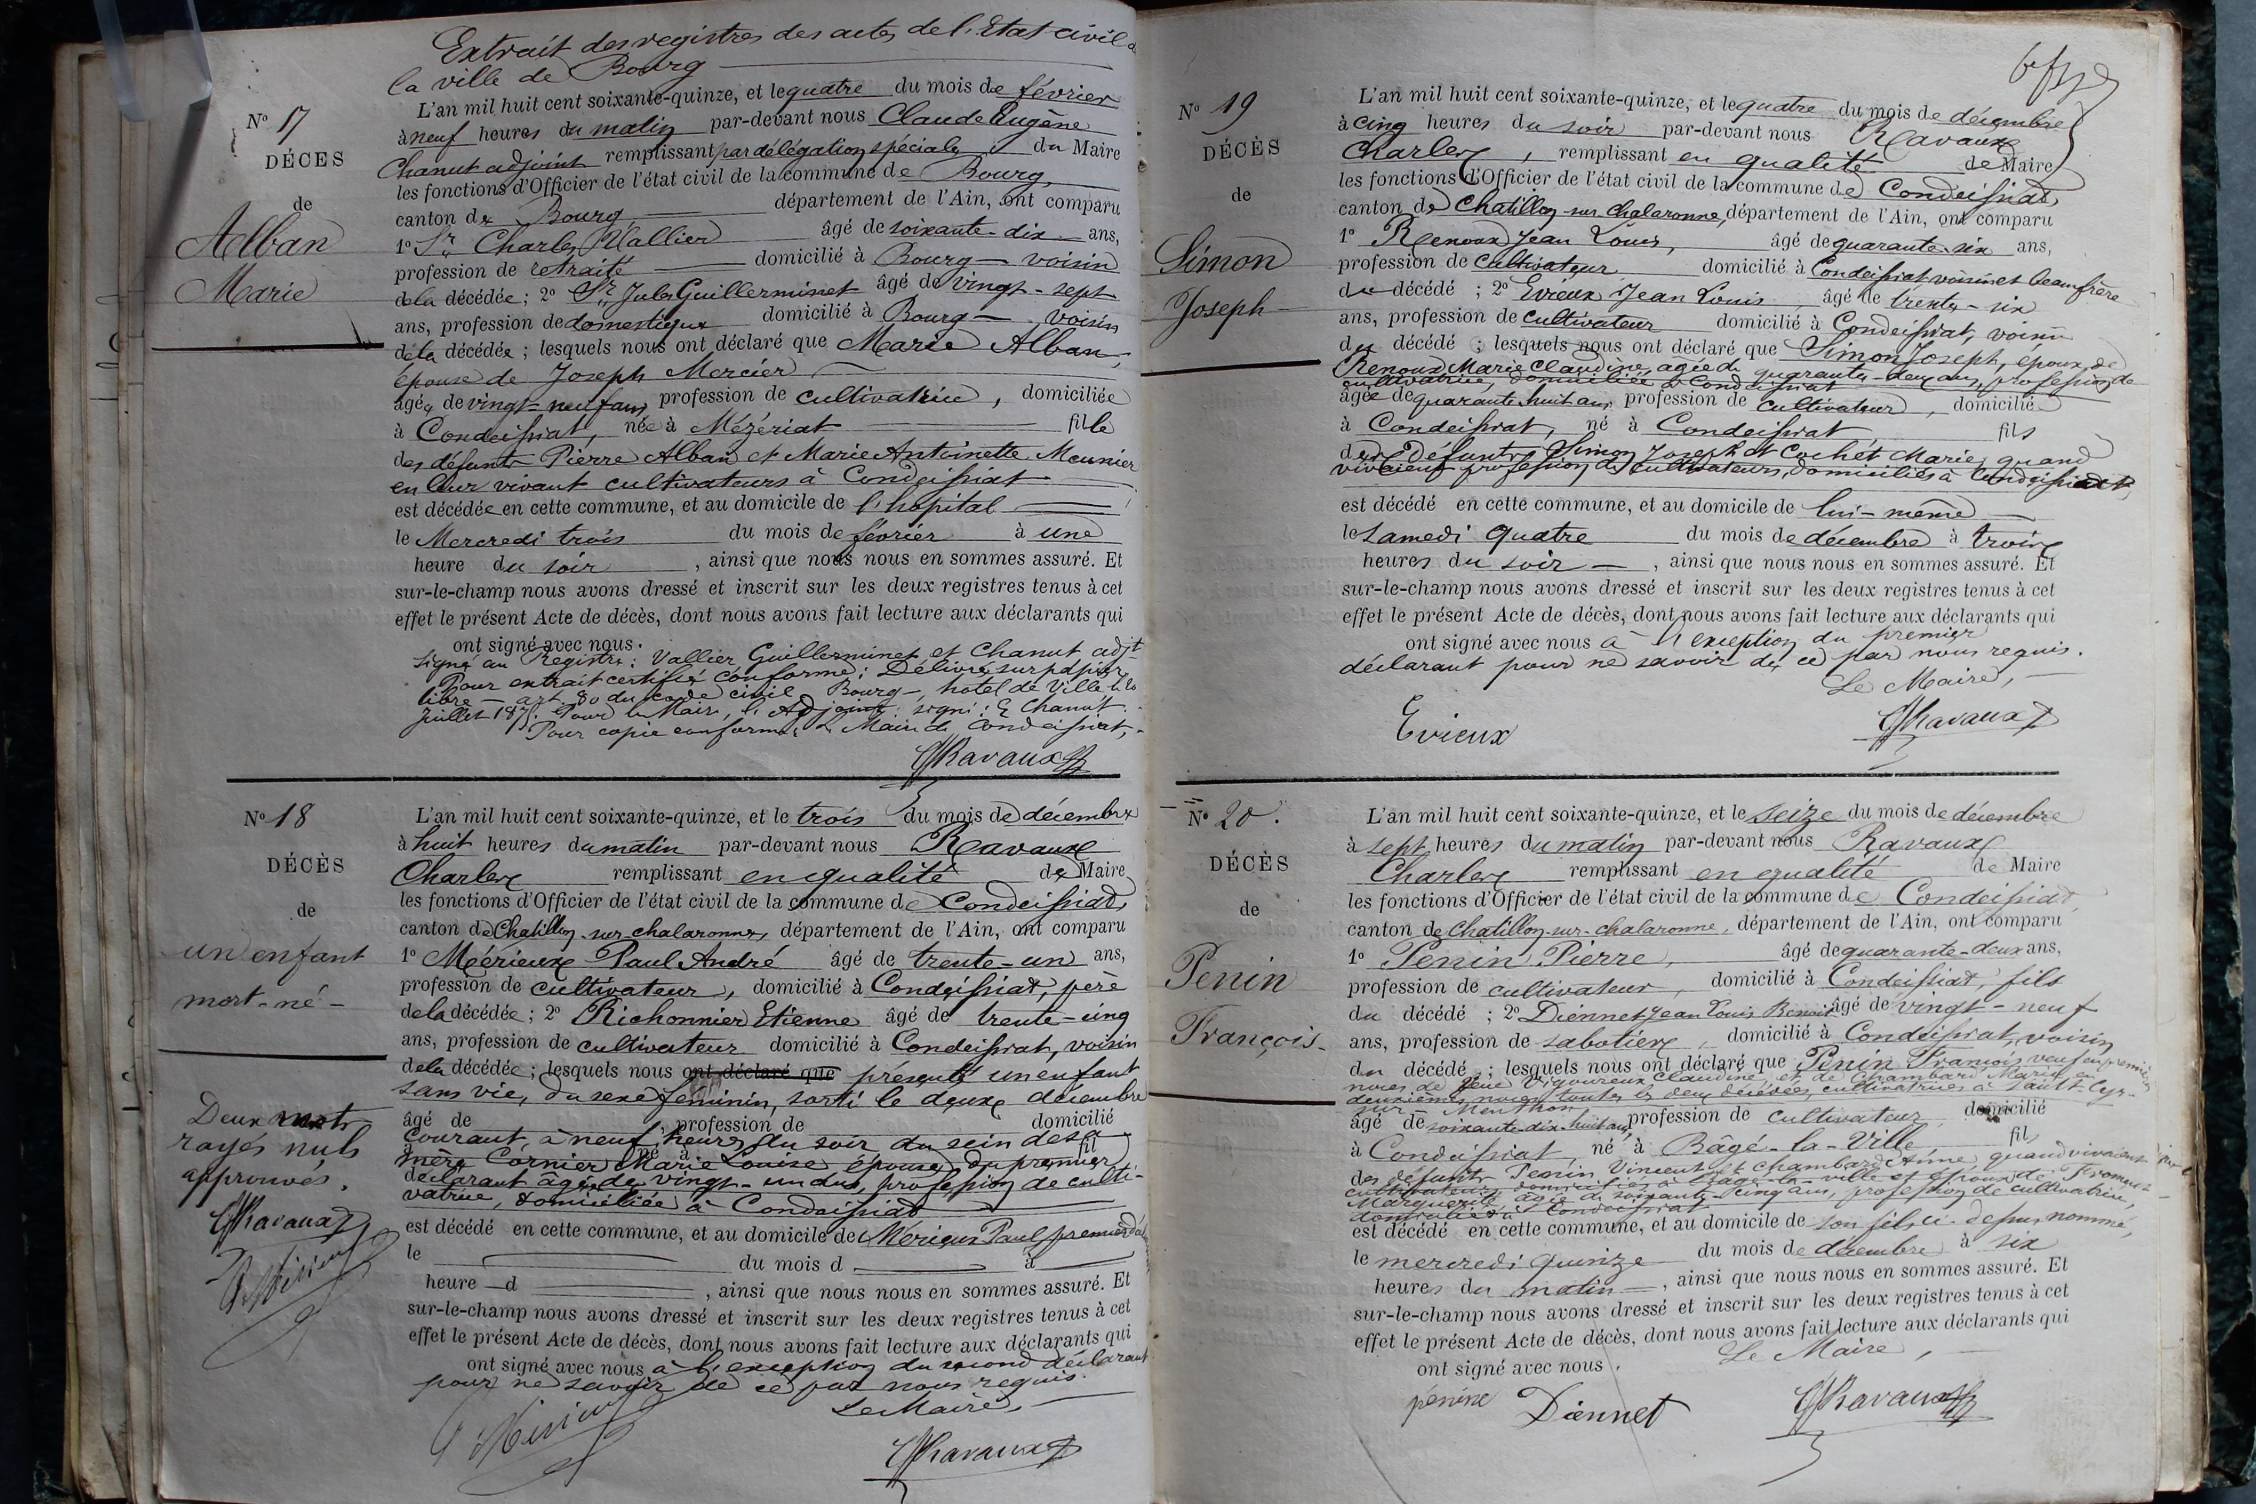 Extrait des registres des actes de l'Etat civil de
la ville de Bourg
N° 17
DÉCES
de
Alban
Marie
L'an mil huit cent soixante-quinze, et le quatre du mois de février
à neuf heures du matin par-devant nous Claude Eugène
Chanut adjoint remplissant par délégation spéciale du Maire
les fonctions d'Officier de l'état civil de la commune de Bourg,
canton de Bourg département de l'Ain, ont comparu
1° Sr Charles Vallier âgé de soixante-dix ans,
profession de retraité domicilié à Bourg voisin
de la décédée ; 2° Sr Jules Guillerminet âgé de vingt-sept
ans, profession de domestique domicilié à Bourg voisin
de la décédée ; lesquels nous ont déclaré que Marie Alban,
épouse de Joseph Mercier
âgée de vingt-neuf ans profession de cultivatrice, domiciliée
à Condeissiat, née à Mézériat fille
des défunts Pierre Alban et Marie Antoinette Meunier
en leur vivant cultivateurs à Condeissiat
est décédée en cette commune, et au domicile de l'hôpital
le Mercredi trois du mois de février à une
heure du soir, ainsi que nous nous en sommes assuré. Et
sur-le-champ nous avons dressé et inscrit sur les deux registres tenus à cet
effet le présent Acte de décès, dont nous avons fait lecture aux déclarants qui
ont signé avec nous.
signé au Registre : Vallier, Guillerminet et Chanut adjt
Pour extrait certifié conforme ; Délivré sur papier
libre – art. 80 du code civil, Bourg –, hôtel de Ville le 20
juillet 1875. Pour le Maire, l'Adjoint signé : E Chanut.
Pour copie conforme, Le Maire de Condeissiat,
Ravaux
N° 18
DÉCÈS
de
un enfant
mort-né –
Deux mots
rayés nuls
approuvés.
Ravaux
L'an mil huit cent soixante-quinze, et le trois du mois de décembre
à huit heures du matin par-devant nous Ravaux
Charles remplissant en qualité de Maire
les fonctions d'Officier de l'état civil de la commune de Condeissiat,
canton de Chatillon-sur-chalaronne, département de l'Ain, ont comparu
1° Mérieux Paul André âgé de trente-un ans,
profession de cultivateur, domicilié à Condeissiat, père
de la décédée ; 2° Richonnier Etienne âgé de trente-cinq
ans, profession de cultivateur domicilié à Condeissiat, voisin
de la décédée ; lesquels nous ont déclaré que présenté un enfant
sans vie, du sexe féminin, sorti le deux décembre
âgé de , profession de domicilié
courant, à neuf heures du soir du sein de sa
à né à fil
mère Cornier Marie Louise épouse du premier
déclarant âgée de vingt-un ans, profession de culti-
vatrice, domiciliée à Condeissiat
est décédé en cette commune, et au domicile de Mérieux Paul premier
le du mois d à
heure d , ainsi que nous nous en sommes assuré. Et
sur-le-champ nous avons dressé et inscrit sur les deux registres tenus à cet
effet le présent Acte de décès, dont nous avons fait lecture aux déclarants qui
ont signé avec nous à l'exception du second déclarant
pour ne savoir de ce par nous requis.
Le Maire,
Ravaux
N° 19
DÉCÈS
de
Simon
Joseph
L'an mil huit cent soixante-quinze, et le quatre du mois de décembre
à cinq heures du soir par-devant nous Ravaux
Charles, remplissant en qualité de Maire
les fonctions d'Officier de l'état civil de la commune de Condeissiat,
canton de Chatillon-sur-chalaronne, département de l'Ain, ont comparu
1° Renoux Jean Louis, âgé de quarante-six ans,
profession de cultivateur domicilié à Condeissiat voisin et beau frère
du décédé ; 2° Evieux Jean Louis âgé de trente-six
ans, profession de cultivateur domicilié à Condeissiat, voisin
du décédé ; lesquels nous ont déclaré que Simon Joseph, époux de
Renoux Marie Claudine, agée de quarante-deux ans, profession de
cultivatrice, domiciliée à Condeissiat
âgé de quarante huit ans, profession de cultivateur, domicilié
à Condeissiat, né à Condeissiat fils
des défunts Simon Joseph et Cochet Marie, quand
vivaient profession de cultivateurs, domiciliés à Condeissiat
est décédé en cette commune, et au domicile de lui-même
le samedi quatre du mois de décembre à trois
heures du soir –, ainsi que nous nous en sommes assuré. Et
sur-le-champ nous avons dressé et inscrit sur les deux registres tenus à cet
effet le présent Acte de décès, dont nous avons fait lecture aux déclarants qui
ont signé avec nous à l'exception du premier
déclarant pour ne savoir de ce par nous requis.
Le Maire,
Evieux
Ravaux
N° 20.
DÉCÈS
de
Penin
François
L'an mil huit cent soixante-quinze, et le seize du mois de décembre
à sept heures du matin par-devant nous Ravaux
Charles remplissant en qualité de Maire
les fonctions d'Officier de l'état civil de la commune de Condeissiat,
canton de Chatillon-sur-chalaronne, département de l'Ain, ont comparu
1° Penin Pierre, âgé de quarante-deux ans,
profession de cultivateur, domicilié à Condeissiat, fils
du décédé ; 2° Diennet Jean Louis Benoit âgé de vingt-neuf
ans, profession de sabotier, domicilié à Condeissiat, voisin
du décédé ; lesquels nous ont déclaré que Penin François veuf en premières
noces de Vigoureux Claudine, et de Chambard Marie en
deuxièmes noces toutes les deux décédées, cultivatrices à Saint-Cyr-
sur-Menthon
âgé de soixante-dix-huit ans, profession de cultivateur, domicilié
à Condeissiat, né à Bâgé-la-Ville fils
des défunts Penin Vincent et Chambard Aimée quand vivaient
cultivateurs domiciliés à Bâgé-la-ville et époux de
Marguerite âgée de soixante-cinq ans, profession de cultivatrice,
domiciliée à Condeissiat
est décédé en cette commune, et au domicile de son fils ci-dessus nommé,
le mercredi quinze du mois de décembre à six
heures du matin –, ainsi que nous nous en sommes assuré. Et
sur-le-champ nous avons dressé et inscrit sur les deux registres tenus à cet
effet le présent Acte de décès, dont nous avons fait lecture aux déclarants qui
ont signé avec nous.
Le Maire,
penine Diennet Ravaux